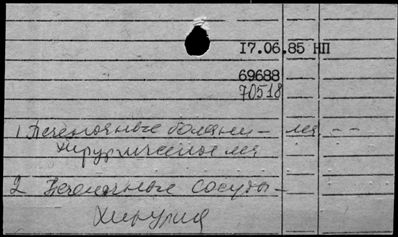 17.06.85 НП
69688
70518
1 Печеночные болезни –
хирургические
2 Печеночные сосуды –
хирургия